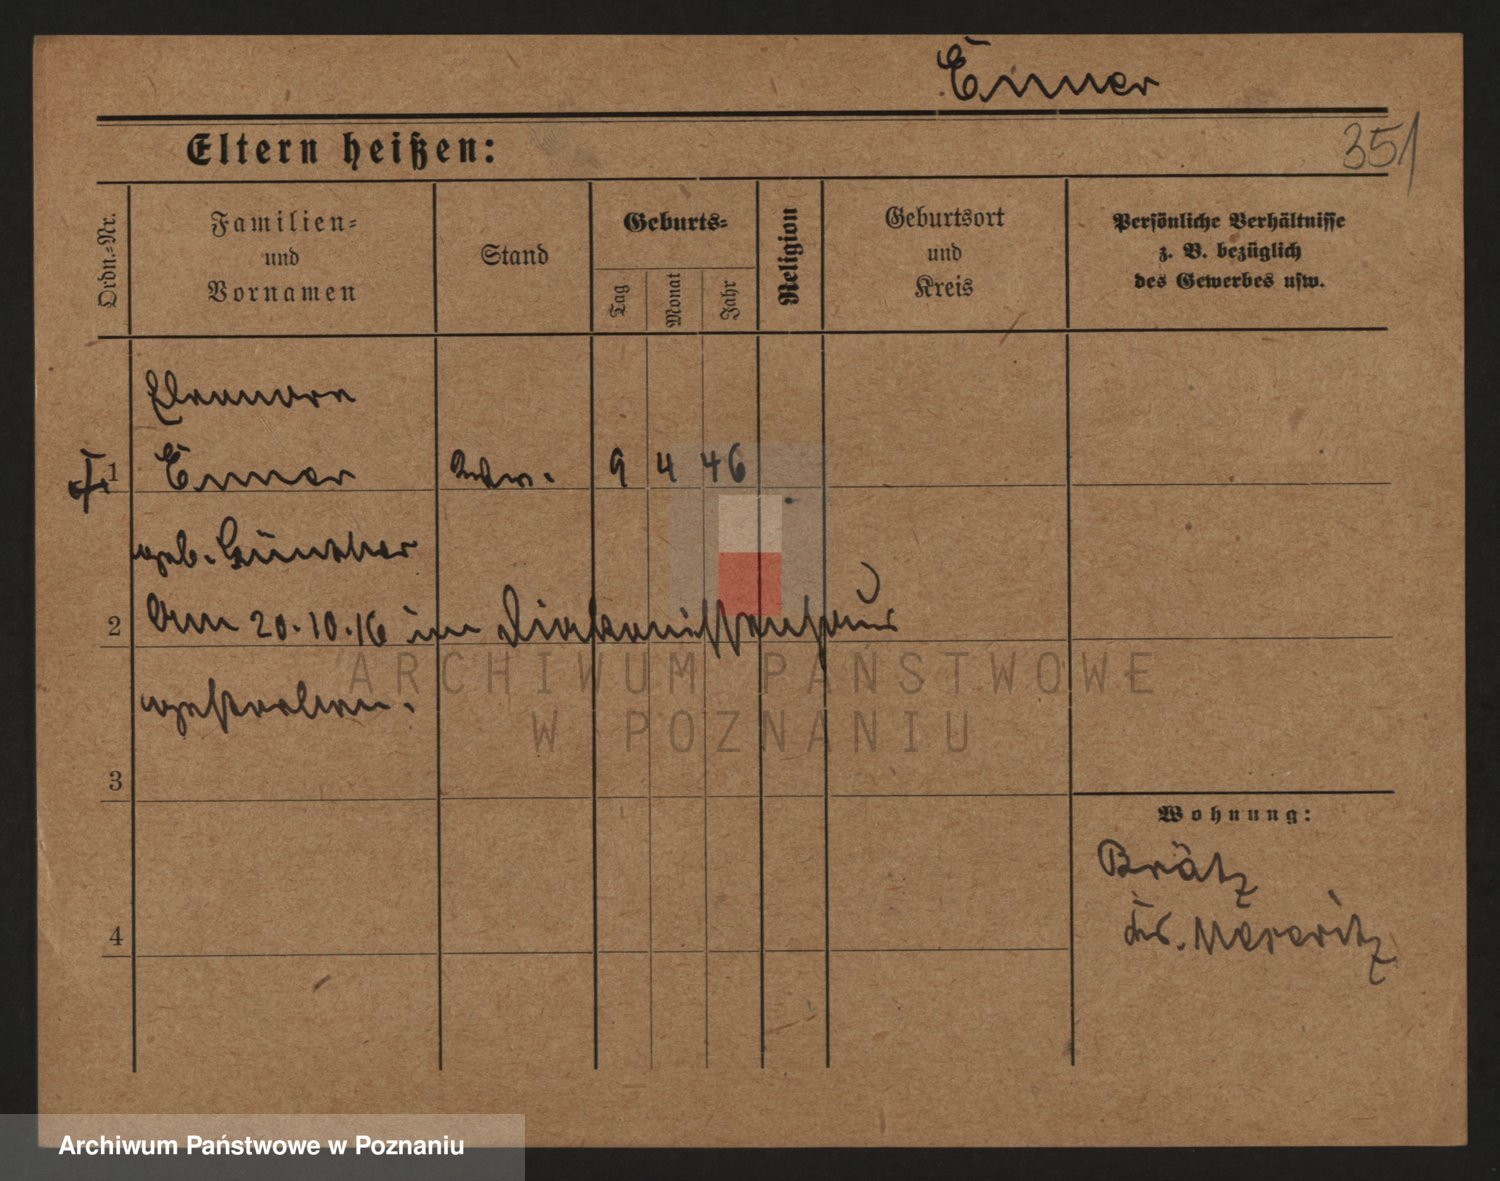 Ellmer
351
Eltern heißen:
Ordn.=Nr.
Familien=
und
Vornamen
Stand
Geburts=
Tag
Monat
Jahr
Religion
Geburtsort
und
Kreis
Persönliche Verhältnisse
z. B. bezüglich
des Gewerbes usw.
Eleonore
1 9 4 46
geb. Günther
2 Am 20.10.16 im Diakonissenhaus
gestorben.
ARCHIWUM PAŃSTWOWE
W POZNANIU
3
Wohnung:
Brätz
Krs. Meseritz
4
Archiwum Państwowe w Poznaniu